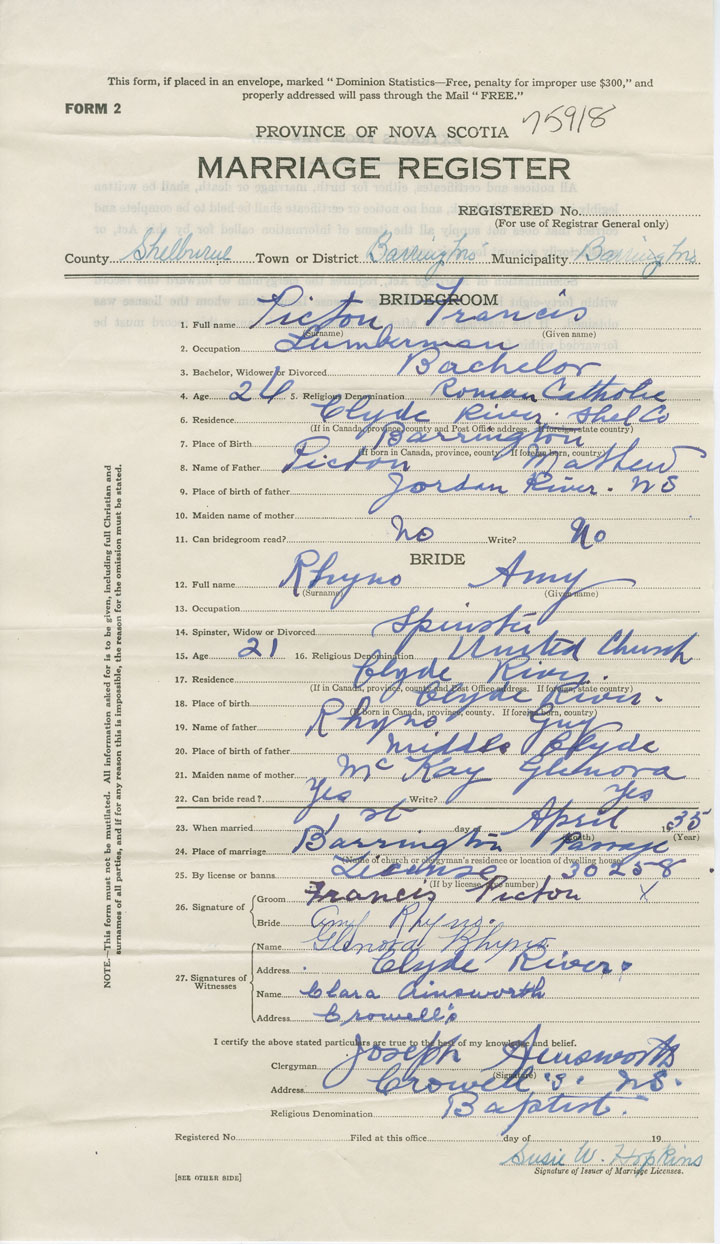 This form, if placed in an envelope, marked " Dominion Statistics—Free, penalty for improper use $300," and
properly addressed will pass through the Mail " FREE."
FORM 2
75918
PROVINCE OF NOVA SCOTIA
MARRIAGE REGISTER
REGISTERED No.
(For use of Registrar General only)
County Shelburne Town or District Barrington Municipality Barrington
BRIDEGROOM
1. Full name Picton Francis
(Surname) (Given name)
2. Occupation Lumberman
3. Bachelor, Widower or Divorced Bachelor
4. Age 26 5. Religious Denomination Roman Catholic
6. Residence Clyde River. Shel Co
(If in Canada, province, county and Post Office address. If foreign, state country)
7. Place of Birth Barrington
(If born in Canada, province, county. If foreign born, country)
8. Name of Father Picton Mathew
9. Place of birth of father Jordan River. NS
10. Maiden name of mother
11. Can bridegroom read? No Write? No
BRIDE
12. Full name Rhyno Amy
(Surname) (Given name)
13. Occupation
14. Spinster, Widow or Divorced Spinster
15. Age 21 16. Religious Denomination United Church
17. Residence Clyde River.
(If in Canada, province, county and Post Office address. If foreign, state country)
18. Place of birth Clyde River.
(If born in Canada, province, county. If foreign born, country)
19. Name of father Rhyno Guy
20. Place of birth of father Middle Clyde
21. Maiden name of mother McKay Glenora
22. Can bride read? Yes Write? Yes
23. When married 1st day of April 1935
(Month) (Year)
24. Place of marriage Barrington Passage
(Name of church or clergyman's residence or location of dwelling house)
25. By license or banns License 30258
(If by license, give number)
26. Signature of Groom Francis Picton X
Bride Amy Rhyno.
27. Signatures of Witnesses Name Glenora Rhyno
Address Clyde River.
Name Clara Ainsworth
Address Crowell's
I certify the above stated particulars are true to the best of my knowledge and belief.
Clergyman Joseph Ainsworth
(Signature)
Address Crowell's. NS.
Religious Denomination Baptist.
Registered No. Filed at this office day of 19
Susie W. Hopkins
Signature of Issuer of Marriage Licenses.
[SEE OTHER SIDE]
NOTE.—This form must not be mutilated. All information asked for is to be given, including full Christian and
surnames of all parties, and if for any reason this is impossible, the reason for the omission must be stated.